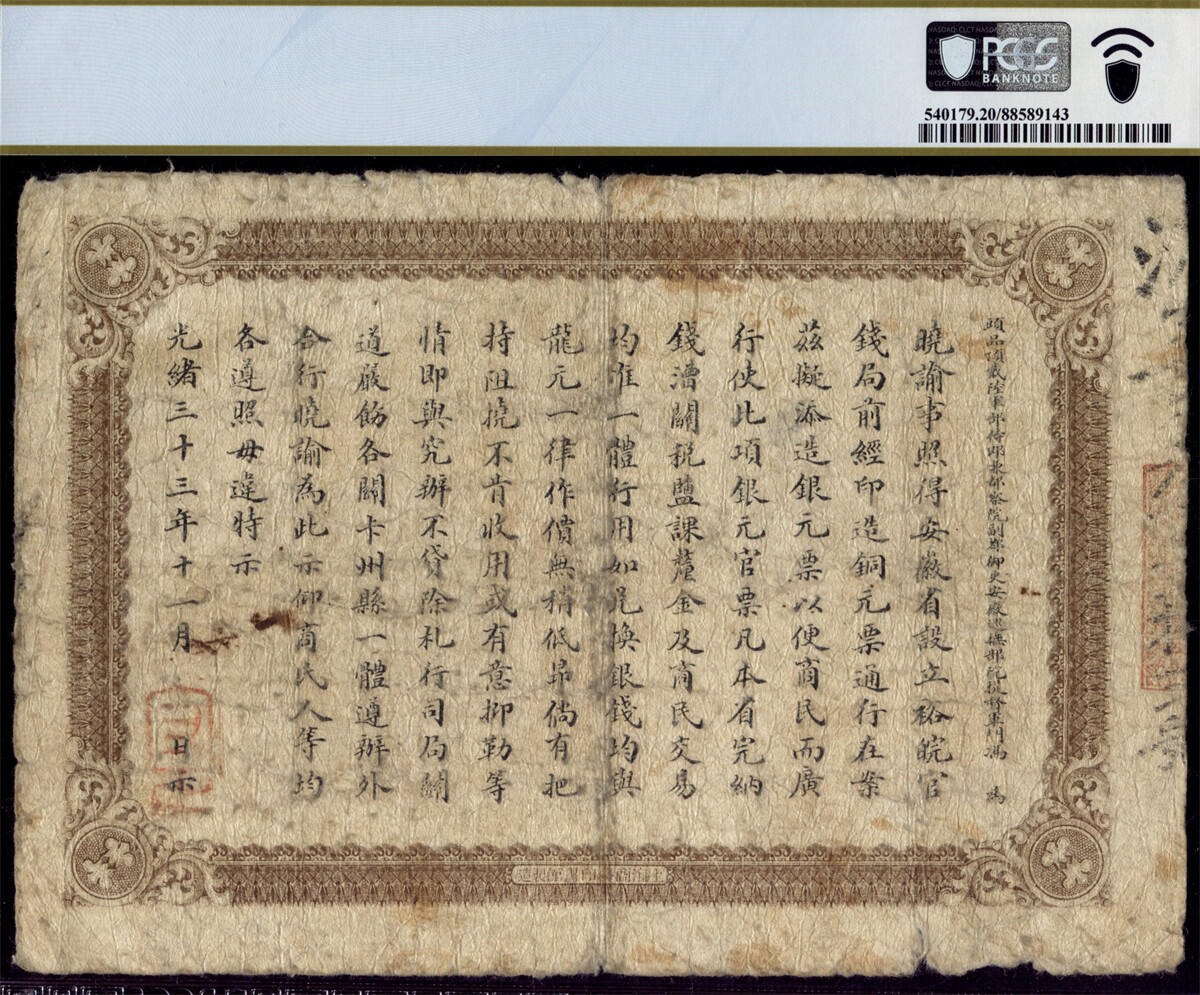 PCGS
BANKNOTE
540179.20/88589143
頭品頂戴陸軍部侍郎兼都察院副都御史安徽巡撫部院提督軍門馮 為
曉諭事照得安徽省設立裕皖官
錢局前經印造銅元票通行在案
茲擬添造銀元票以便商民而廣
行使此項銀元官票凡本省完納
錢漕關稅鹽課釐金及商民交易
均准一體行用如兌換銀錢均與
龍元一律作價無稍低昂倘有把
持阻撓不肯收用或有意抑勒等
情即與究辦不貸除札行司局關
道嚴飭各關卡州縣一體遵辦外
合行曉諭為此示仰商民人等均
各遵照毋違特示
光緒三十三年十一月 日示